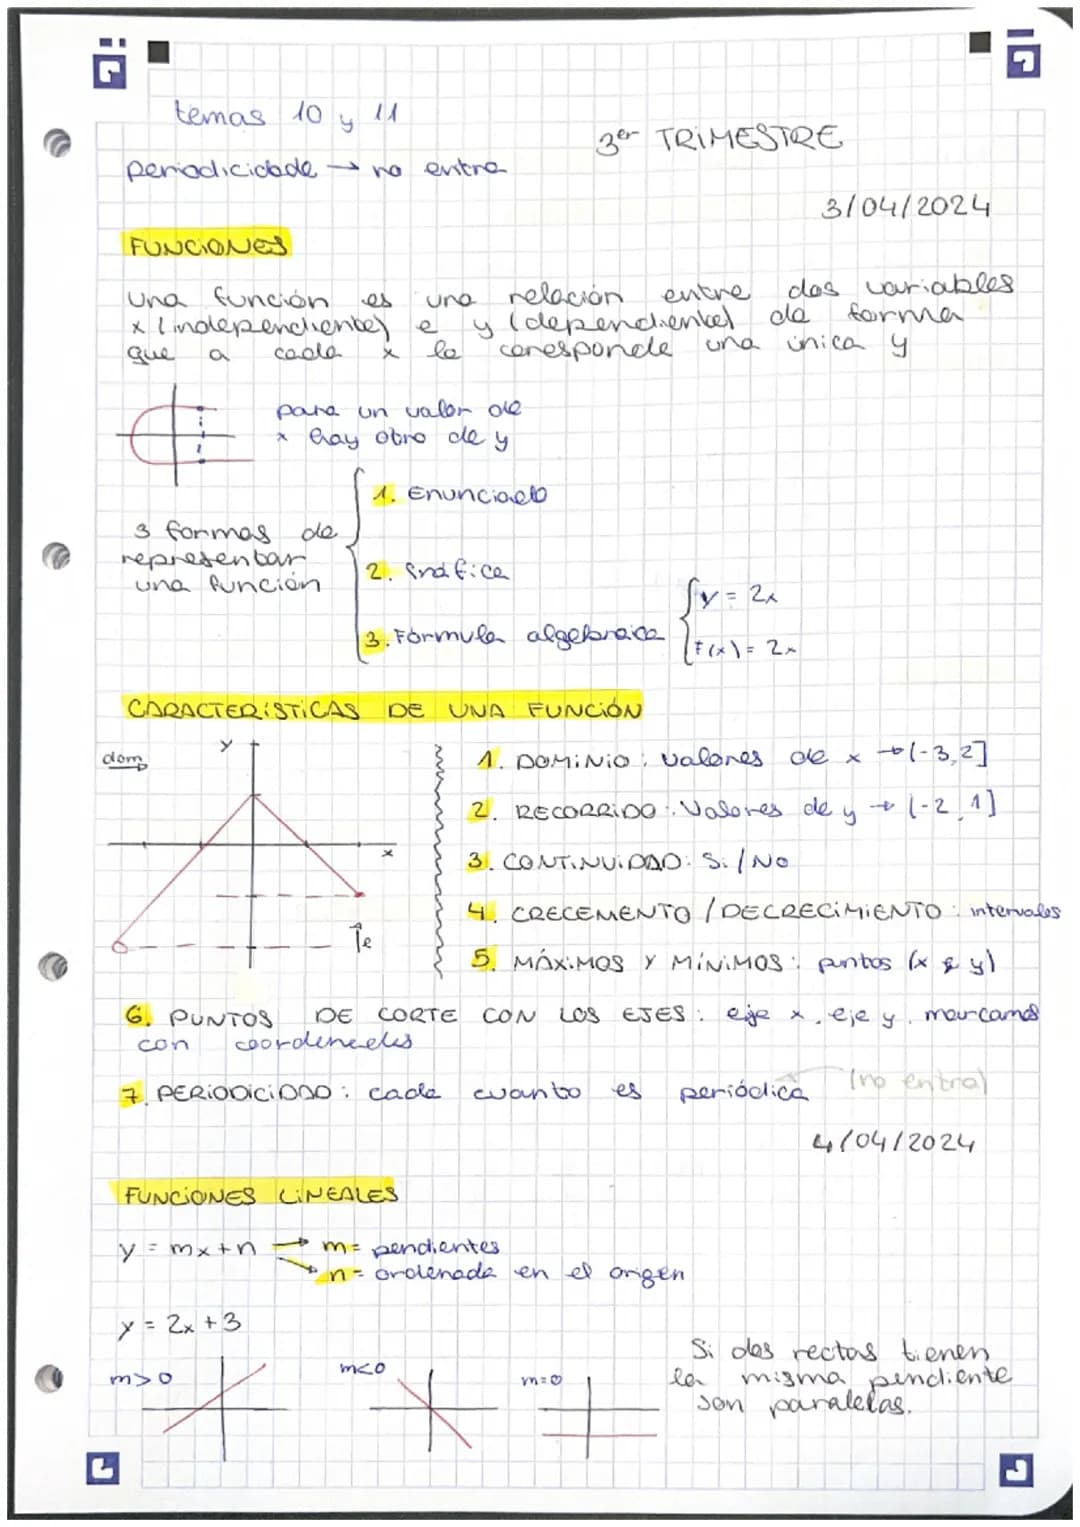 temas 10 y 11
3er TRIMESTRE
periodicidade → no entra
3/04/2024
FUNCIONES
una función es una relación entre dos variables
x (independiente) e y (dependiente) de forma
que a cada x le coresponde una única y
para un valor de
x hay otro de y
3 formas de
representar
una función
1. Enunciado
2. Gráfica
3. Fórmula algebraica
y = 2x
F(x) = 2x
CARACTERÍSTICAS DE UNA FUNCIÓN
dom
y
x
1. DOMINIO: valores de x → (-3,2]
2. RECORRIDO: Valores de y → (-2,1]
3. CONTINUIDAD: Si/No
4. CRECEMENTO / DECRECIMIENTO: intervalos
5. MÁXIMOS Y MÍNIMOS: puntos (x e y)
6. PUNTOS DE CORTE CON LOS EJES: eje x, eje y, marcamos
con coordenadas
7. PERIODICIDAD: cada cuanto es periódica (no entra)
4/04/2024
FUNCIONES LINEALES
y = mx+n → m= pendientes
n= ordenada en el origen
y = 2x + 3
m>0
m<0
m=0
Si dos rectas tienen
la misma pendiente
son paralelas.